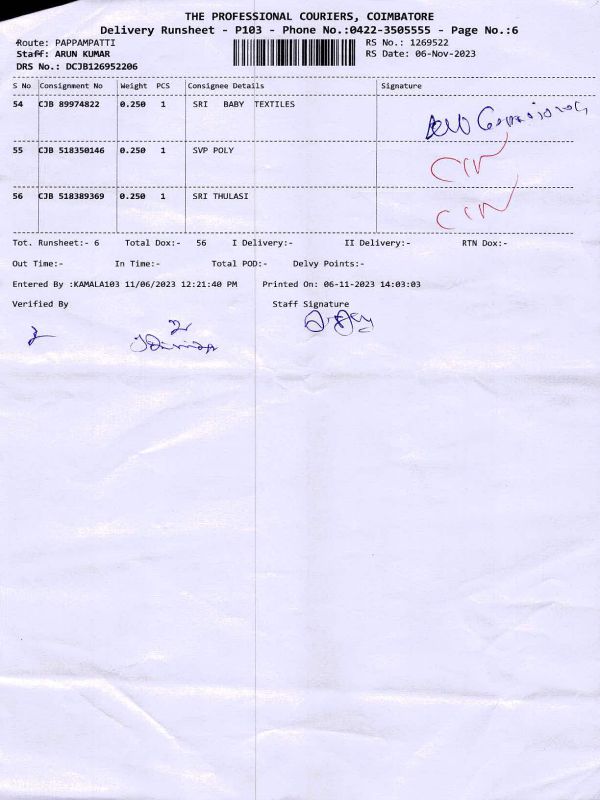 THE PROFESSIONAL COURIERS, COIMBATORE
Delivery Runsheet - P103 - Phone No.:0422-3505555 - Page No.:6
Route: PAPPAMPATTI RS No.: 1269522
Staff: ARUN KUMAR RS Date: 06-Nov-2023
DRS No.: DCJB126952206
S No Consignment No Weight PCS Consignee Details Signature
54 CJB 89974822 0.250 1 SRI BABY TEXTILES
55 CJB 518350146 0.250 1 SVP POLY
56 CJB 518389369 0.250 1 SRI THULASI
Tot. Runsheet:- 6 Total Dox:- 56 I Delivery:- II Delivery:- RTN Dox:-
Out Time:- In Time:- Total POD:- Delvy Points:-
Entered By :KAMALA103 11/06/2023 12:21:40 PM Printed On: 06-11-2023 14:03:03
Verified By Staff Signature